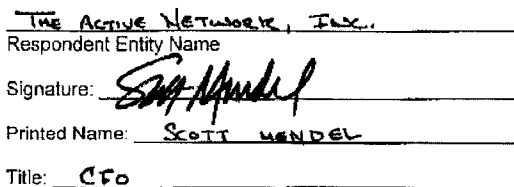 THE ACTIVE NETWORK, INC.
Respondent Entity Name
Signature: Scott Mendel
Printed Name: SCOTT MENDEL
Title: CFO